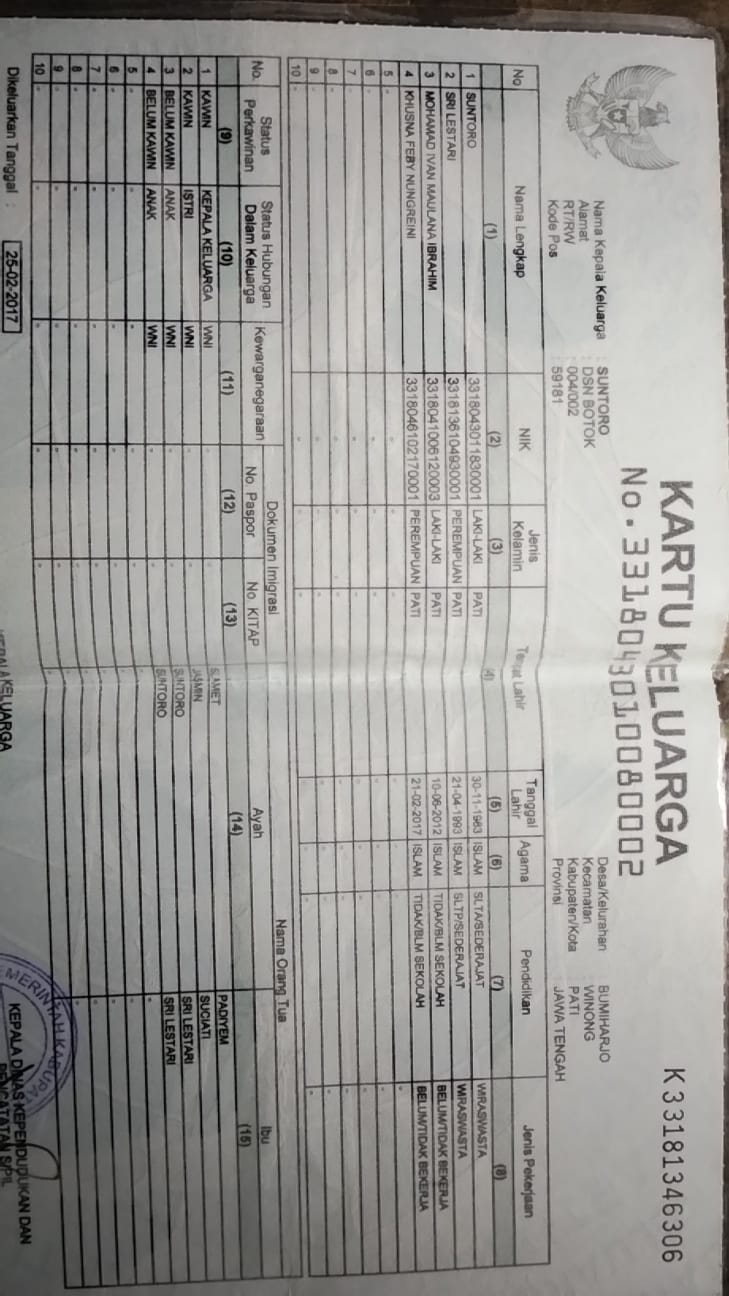 KARTU KELUARGA
No. 3318043010080002
K 33181346306
Nama Kepala Keluarga : SUNTORO
Alamat : DSN BOTOK
RT/RW : 004/002
Kode Pos : 59181
Desa/Kelurahan : BUMIHARJO
Kecamatan : WINONG
Kabupaten/Kota : PATI
Provinsi : JAWA TENGAH
No Nama Lengkap NIK Jenis Kelamin Tempat Lahir Tanggal Lahir Agama Pendidikan Jenis Pekerjaan
(1) (2) (3) (4) (5) (6) (7) (8)
1 SUNTORO 3318043011830001 LAKI-LAKI PATI 30-11-1983 ISLAM SLTA/SEDERAJAT WIRASWASTA
2 SRI LESTARI 3318136104930001 PEREMPUAN PATI 21-04-1993 ISLAM SLTP/SEDERAJAT WIRASWASTA
3 MOHAMAD IVAN MAULANA IBRAHIM 3318041006120003 LAKI-LAKI PATI 10-06-2012 ISLAM TIDAK/BLM SEKOLAH BELUM/TIDAK BEKERJA
4 KHUSNA FEBY NUNGREINI 3318046102170001 PEREMPUAN PATI 21-02-2017 ISLAM TIDAK/BLM SEKOLAH BELUM/TIDAK BEKERJA
5 - - - - - - - -
6 - - - - - - - -
7 - - - - - - - -
8 - - - - - - - -
9 - - - - - - - -
10 - - - - - - - -
No. Status Perkawinan Status Hubungan Dalam Keluarga Kewarganegaraan Dokumen Imigrasi Nama Orang Tua
No. Paspor No. KITAP Ayah Ibu
(9) (10) (11) (12) (13) (14) (15)
1 KAWIN KEPALA KELUARGA WNI - - SLAMET PADIYEM
2 KAWIN ISTRI WNI - - JASMIN SUCIATI
3 BELUM KAWIN ANAK WNI - - SUNTORO SRI LESTARI
4 BELUM KAWIN ANAK WNI - - SUNTORO SRI LESTARI
5 - - - - - - -
6 - - - - - - -
7 - - - - - - -
8 - - - - - - -
9 - - - - - - -
10 - - - - - - -
Dikeluarkan Tanggal : 25-02-2017
KEPALA KELUARGA
KEPALA DINAS KEPENDUDUKAN DAN
PENCATATAN SIPIL